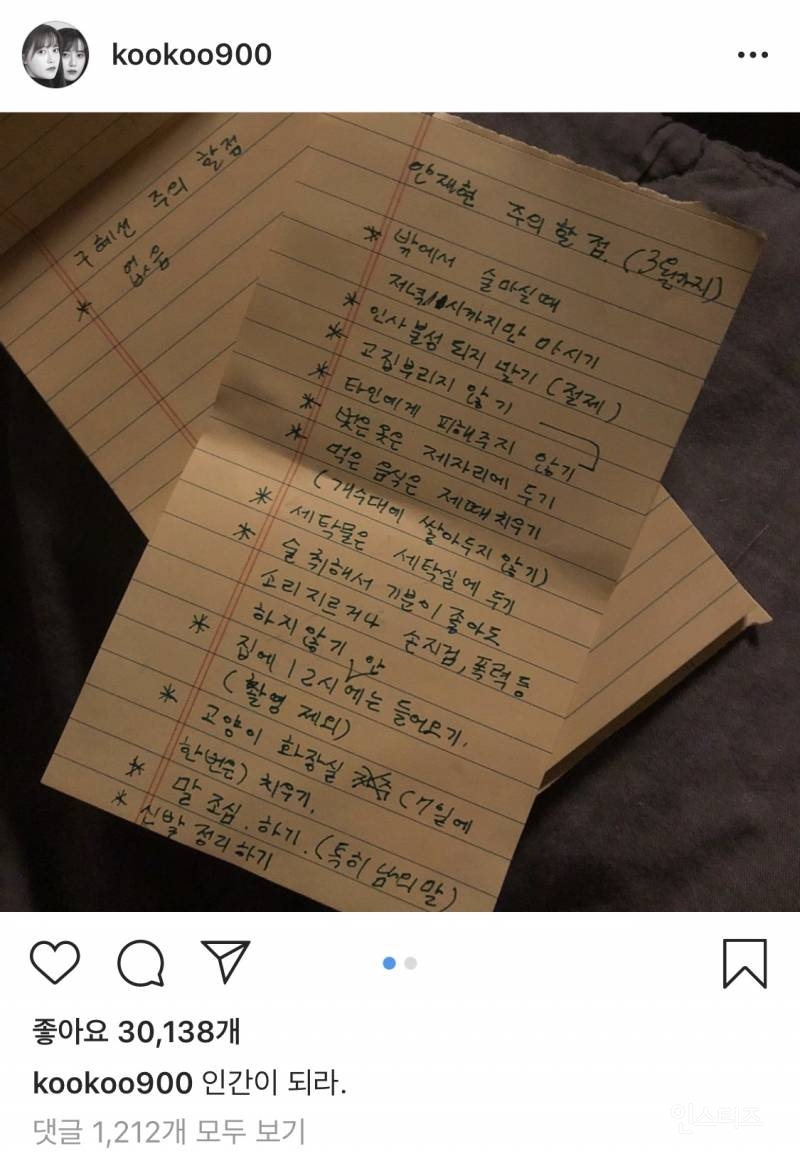 kookoo900
구혜선 주의 할점
* 없음
안재현 주의할 점. (3월까지)
* 밖에서 술마실때
저녁 11시까지만 마시기
* 인사불성 되지 말기 (절제)
* 고집부리지 않기
* 타인에게 피해주지 않기
* 벗은 옷은 제자리에 두기
* 먹은 음식은 제때 치우기
(개수대에 쌓아두지 않기)
* 세탁물은 세탁실에 두기
* 술 취해서 기분이 좋아도
소리지르거나 손지검, 폭력 등
하지 않기
* 집에 12시 안에는 들어오기.
(촬영 제외)
* 고양이 화장실 (7일에
한번은) 치우기.
* 말 조심. 하기. (특히 남의 말)
* 신발 정리하기
좋아요 30,138개
kookoo900 인간이 되라.
댓글 1,212개 모두 보기
인스티즈